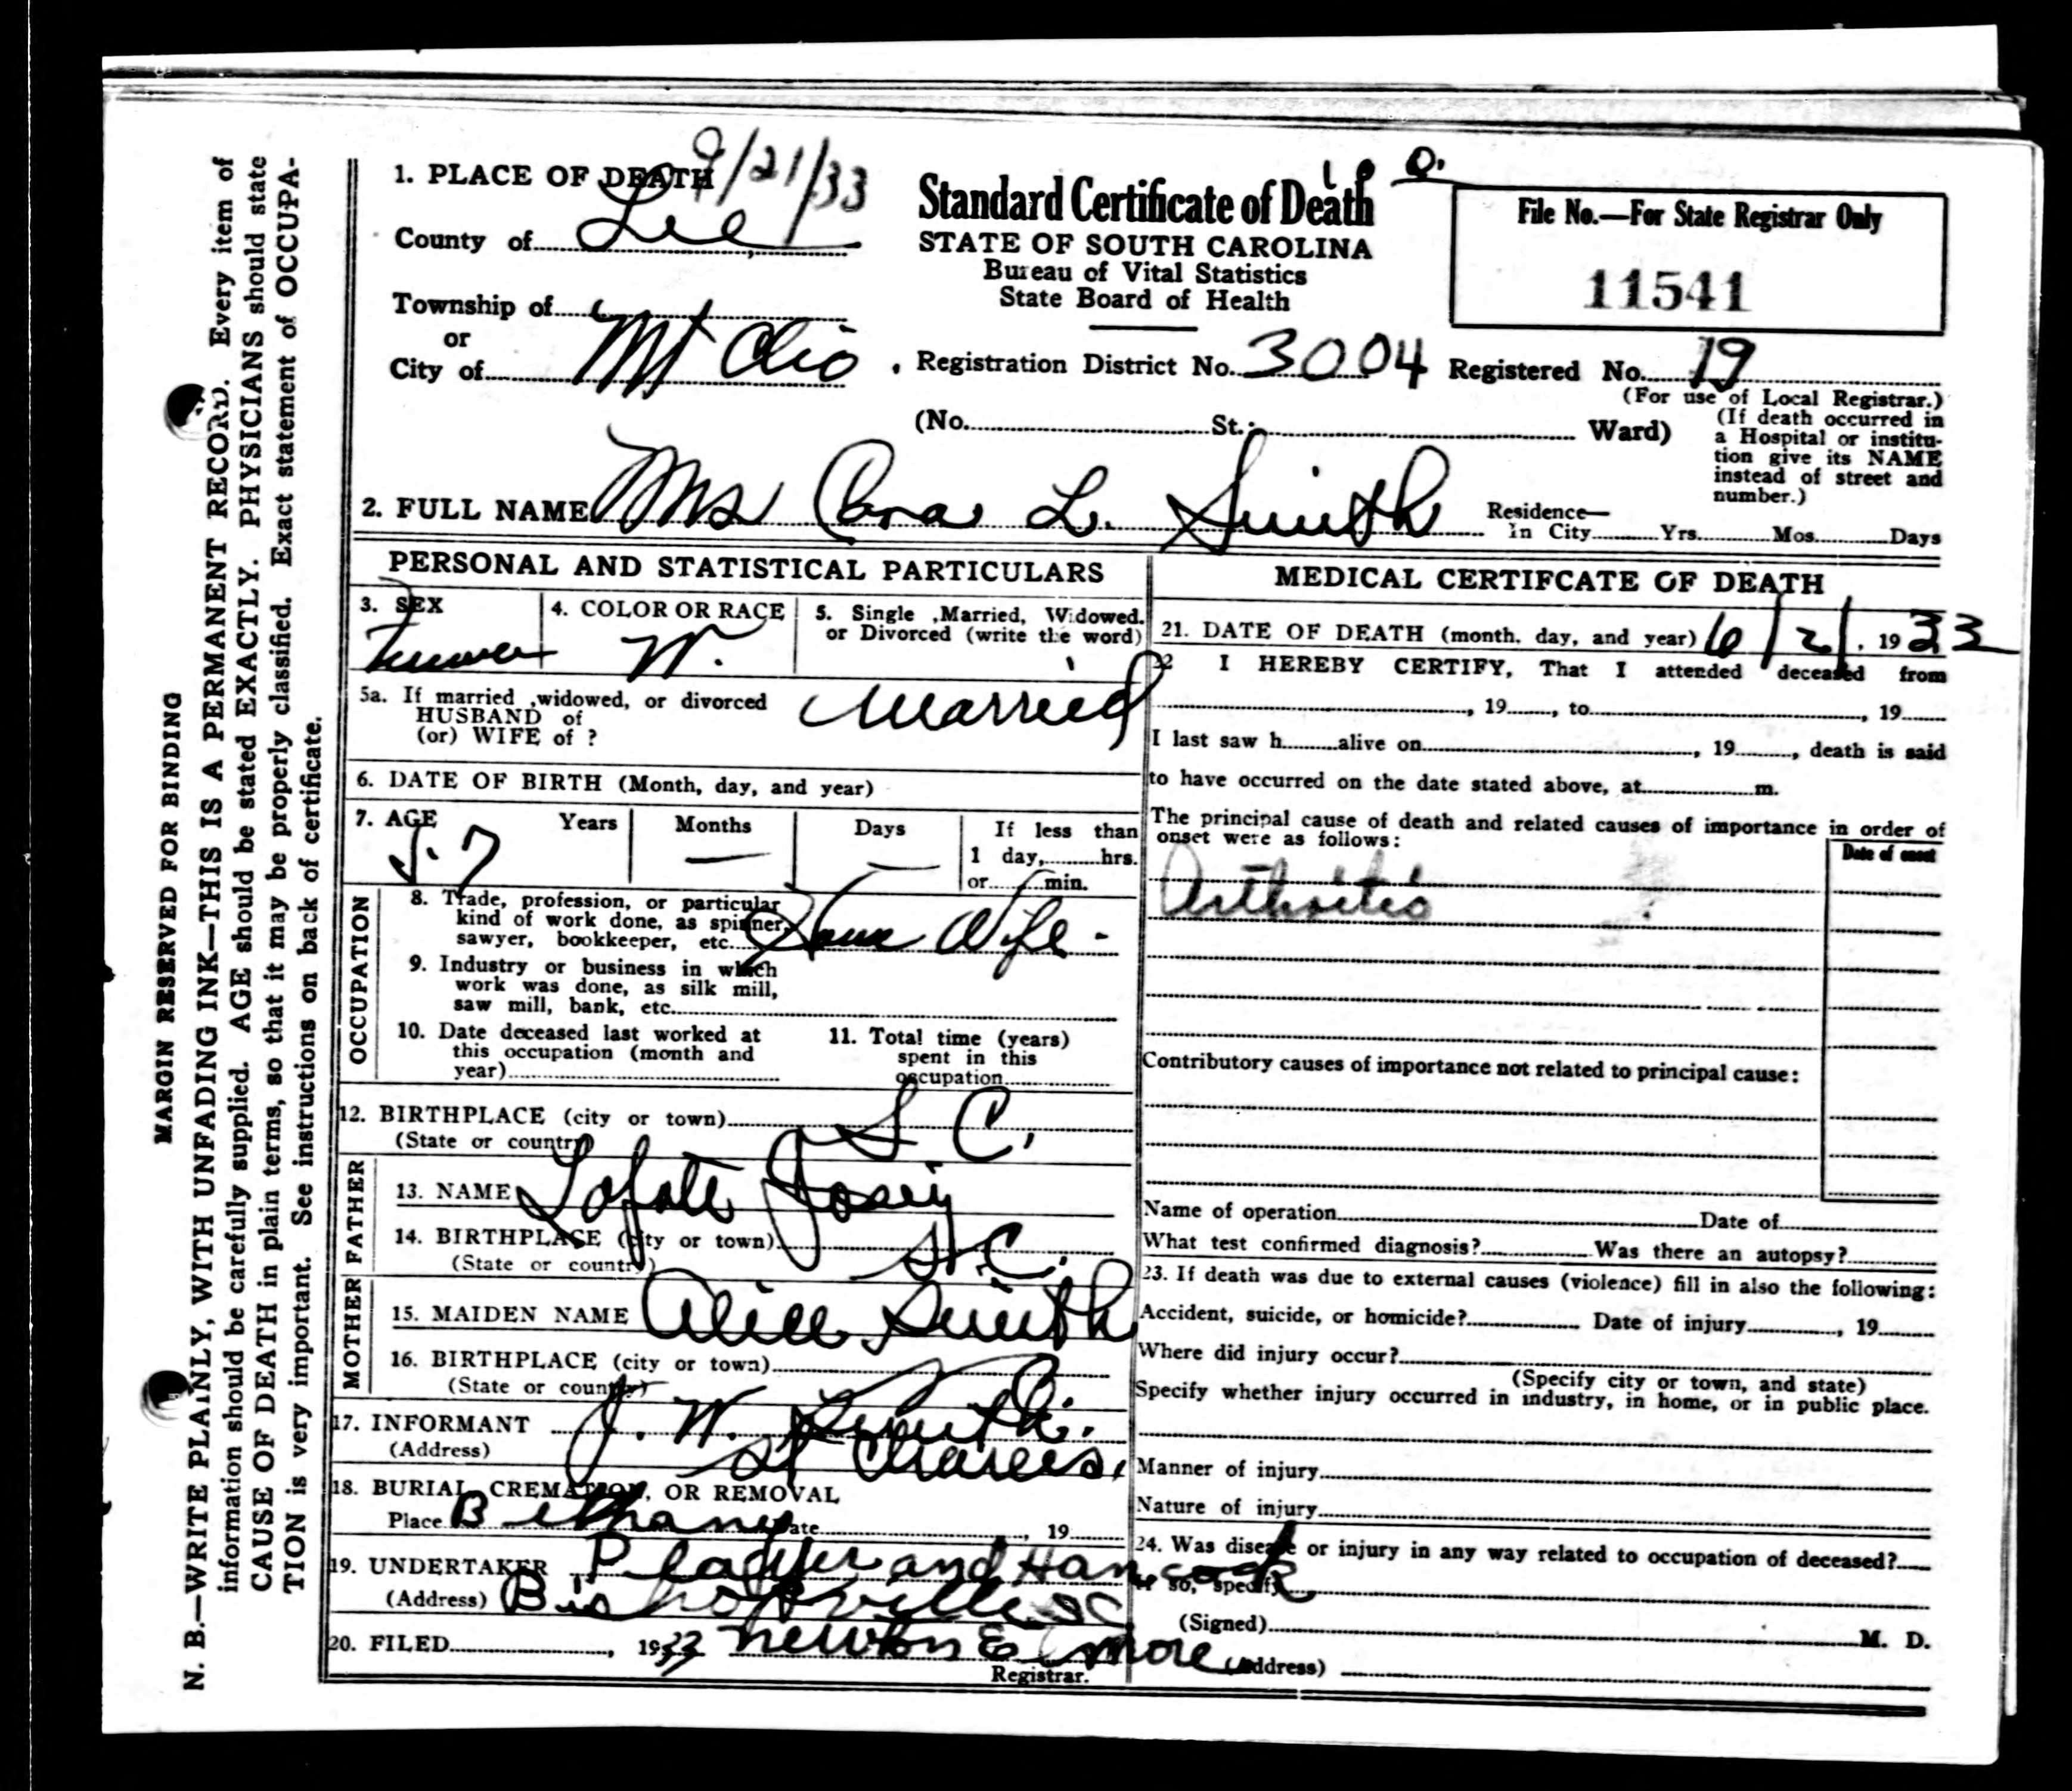 MARGIN RESERVED FOR BINDING
N. B.—WRITE PLAINLY, WITH UNFADING INK—THIS IS A PERMANENT RECORD. Every item of
information should be carefully supplied. AGE should be stated EXACTLY. PHYSICIANS should state
CAUSE OF DEATH in plain terms, so that it may be properly classified. Exact statement of OCCUPA-
TION is very important. See instructions on back of certificate.
9/21/33
1. PLACE OF DEATH
County of Lee
Township of
or
City of Mt Clio
Standard Certificate of Death
STATE OF SOUTH CAROLINA
Bureau of Vital Statistics
State Board of Health
File No.—For State Registrar Only
11541
Registration District No. 3004 Registered No. 19
(For use of Local Registrar.)
(No. St.; Ward)
(If death occurred in
a Hospital or institu-
tion give its NAME
instead of street and
number.)
2. FULL NAME Mrs Cora L. Smith
Residence—
In City Yrs. Mos. Days
PERSONAL AND STATISTICAL PARTICULARS
3. SEX
4. COLOR OR RACE
W.
5. Single ,Married, Widowed.
or Divorced (write the word)
Married
5a. If married ,widowed, or divorced
HUSBAND of
(or) WIFE of ?
6. DATE OF BIRTH (Month, day, and year)
7. AGE Years Months Days If less than
57 — — 1 day, hrs.
or min.
OCCUPATION
8. Trade, profession, or particular
kind of work done, as spinner,
sawyer, bookkeeper, etc. Wife -
9. Industry or business in which
work was done, as silk mill,
saw mill, bank, etc.
10. Date deceased last worked at
this occupation (month and
year)
11. Total time (years)
spent in this
occupation
12. BIRTHPLACE (city or town)
(State or country) S C.
FATHER
13. NAME Josey
14. BIRTHPLACE (city or town)
(State or country) S.C.
MOTHER
15. MAIDEN NAME Alice Smith
16. BIRTHPLACE (city or town)
(State or country)
17. INFORMANT J. W. Smith.
(Address) St Charles.
18. BURIAL, CREMATION, OR REMOVAL
Place Bethany Date , 19
19. UNDERTAKER and Hancock
(Address) Bishopville SC
20. FILED , 1933 Newton E
Registrar.
MEDICAL CERTIFCATE OF DEATH
21. DATE OF DEATH (month. day, and year) 6/2/, 1933
22 I HEREBY CERTIFY, That I attended deceased from
, 19 , to , 19
I last saw h alive on , 19 , death is said
to have occurred on the date stated above, at m.
The principal cause of death and related causes of importance in order of
onset were as follows:
Date of onset
Arthritis
Contributory causes of importance not related to principal cause:
Name of operation Date of
What test confirmed diagnosis? Was there an autopsy?
23. If death was due to external causes (violence) fill in also the following:
Accident, suicide, or homicide? Date of injury , 19
Where did injury occur?
(Specify city or town, and state)
Specify whether injury occurred in industry, in home, or in public place.
Manner of injury
Nature of injury
24. Was disease or injury in any way related to occupation of deceased?
If so, specify
(Signed) M. D.
(Address)